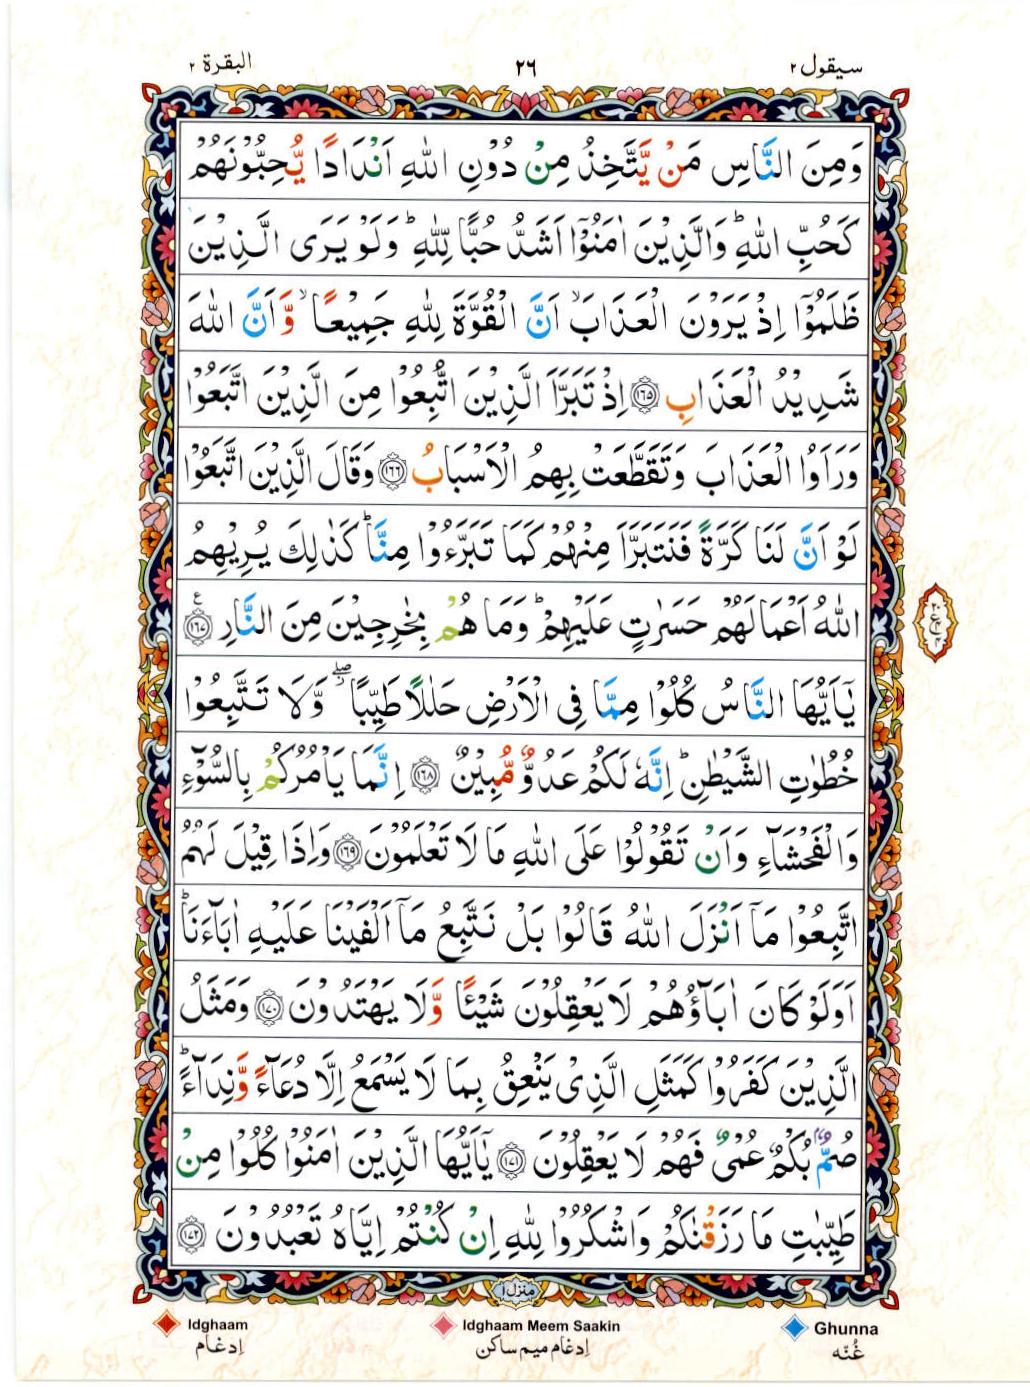 سيقول ٢ ٢٦ البقرة ٢
وَمِنَ النَّاسِ مَنْ يَّتَّخِذُ مِنْ دُوْنِ اللهِ اَنْدَادًا يُّحِبُّوْنَهُمْ
كَحُبِّ اللهِ ؕ وَالَّذِيْنَ اٰمَنُوْۤا اَشَدُّ حُبًّا لِّلّٰهِ ؕ وَلَوْ يَرَى الَّذِيْنَ
ظَلَمُوْۤا اِذْ يَرَوْنَ الْعَذَابَ ۙ اَنَّ الْقُوَّةَ لِلّٰهِ جَمِيْعًا ۙ وَّاَنَّ اللهَ
شَدِيْدُ الْعَذَابِ ﴿١٦٥﴾ اِذْ تَبَرَّاَ الَّذِيْنَ اتُّبِعُوْا مِنَ الَّذِيْنَ اتَّبَعُوْا
وَرَاَوُا الْعَذَابَ وَتَقَطَّعَتْ بِهِمُ الْاَسْبَابُ ﴿١٦٦﴾ وَقَالَ الَّذِيْنَ اتَّبَعُوْا
لَوْ اَنَّ لَنَا كَرَّةً فَنَتَبَرَّاَ مِنْهُمْ كَمَا تَبَرَّءُوْا مِنَّا ؕ كَذٰلِكَ يُرِيْهِمُ
اللهُ اَعْمَالَهُمْ حَسَرٰتٍ عَلَيْهِمْ ؕ وَمَا هُمْ بِخٰرِجِيْنَ مِنَ النَّارِ ﴿١٦٧﴾ ع
يٰۤاَيُّهَا النَّاسُ كُلُوْا مِمَّا فِى الْاَرْضِ حَلٰلًا طَيِّبًا ۖ وَّلَا تَتَّبِعُوْا
خُطُوٰتِ الشَّيْطٰنِ ؕ اِنَّهٗ لَكُمْ عَدُوٌّ مُّبِيْنٌ ﴿١٦٨﴾ اِنَّمَا يَاْمُرُكُمْ بِالسُّوْٓءِ
وَالْفَحْشَآءِ وَاَنْ تَقُوْلُوْا عَلَى اللهِ مَا لَا تَعْلَمُوْنَ ﴿١٦٩﴾ وَاِذَا قِيْلَ لَهُمُ
اتَّبِعُوْا مَاۤ اَنْزَلَ اللهُ قَالُوْا بَلْ نَتَّبِعُ مَاۤ اَلْفَيْنَا عَلَيْهِ اٰبَآءَنَا ؕ
اَوَلَوْ كَانَ اٰبَآؤُهُمْ لَا يَعْقِلُوْنَ شَيْئًا وَّلَا يَهْتَدُوْنَ ﴿١٧٠﴾ وَمَثَلُ
الَّذِيْنَ كَفَرُوْا كَمَثَلِ الَّذِىْ يَنْعِقُ بِمَا لَا يَسْمَعُ اِلَّا دُعَآءً وَّنِدَآءً ؕ
صُمٌّۢ بُكْمٌ عُمْىٌ فَهُمْ لَا يَعْقِلُوْنَ ﴿١٧١﴾ يٰۤاَيُّهَا الَّذِيْنَ اٰمَنُوْا كُلُوْا مِنْ
طَيِّبٰتِ مَا رَزَقْنٰكُمْ وَاشْكُرُوْا لِلّٰهِ اِنْ كُنْتُمْ اِيَّاهُ تَعْبُدُوْنَ ﴿١٧٢﴾
منزل ١
Idghaam Idghaam Meem Saakin Ghunna
اِدغام اِدغام میم ساکن غُنّه